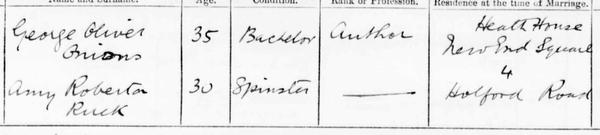 Name and Surname. Age. Condition. Rank or Profession. Residence at the time of Marriage.
George Oliver Onions 35 Bachelor Author Heath House New End Square
Amy Roberta Ruck 30 Spinster — 4 Holford Road